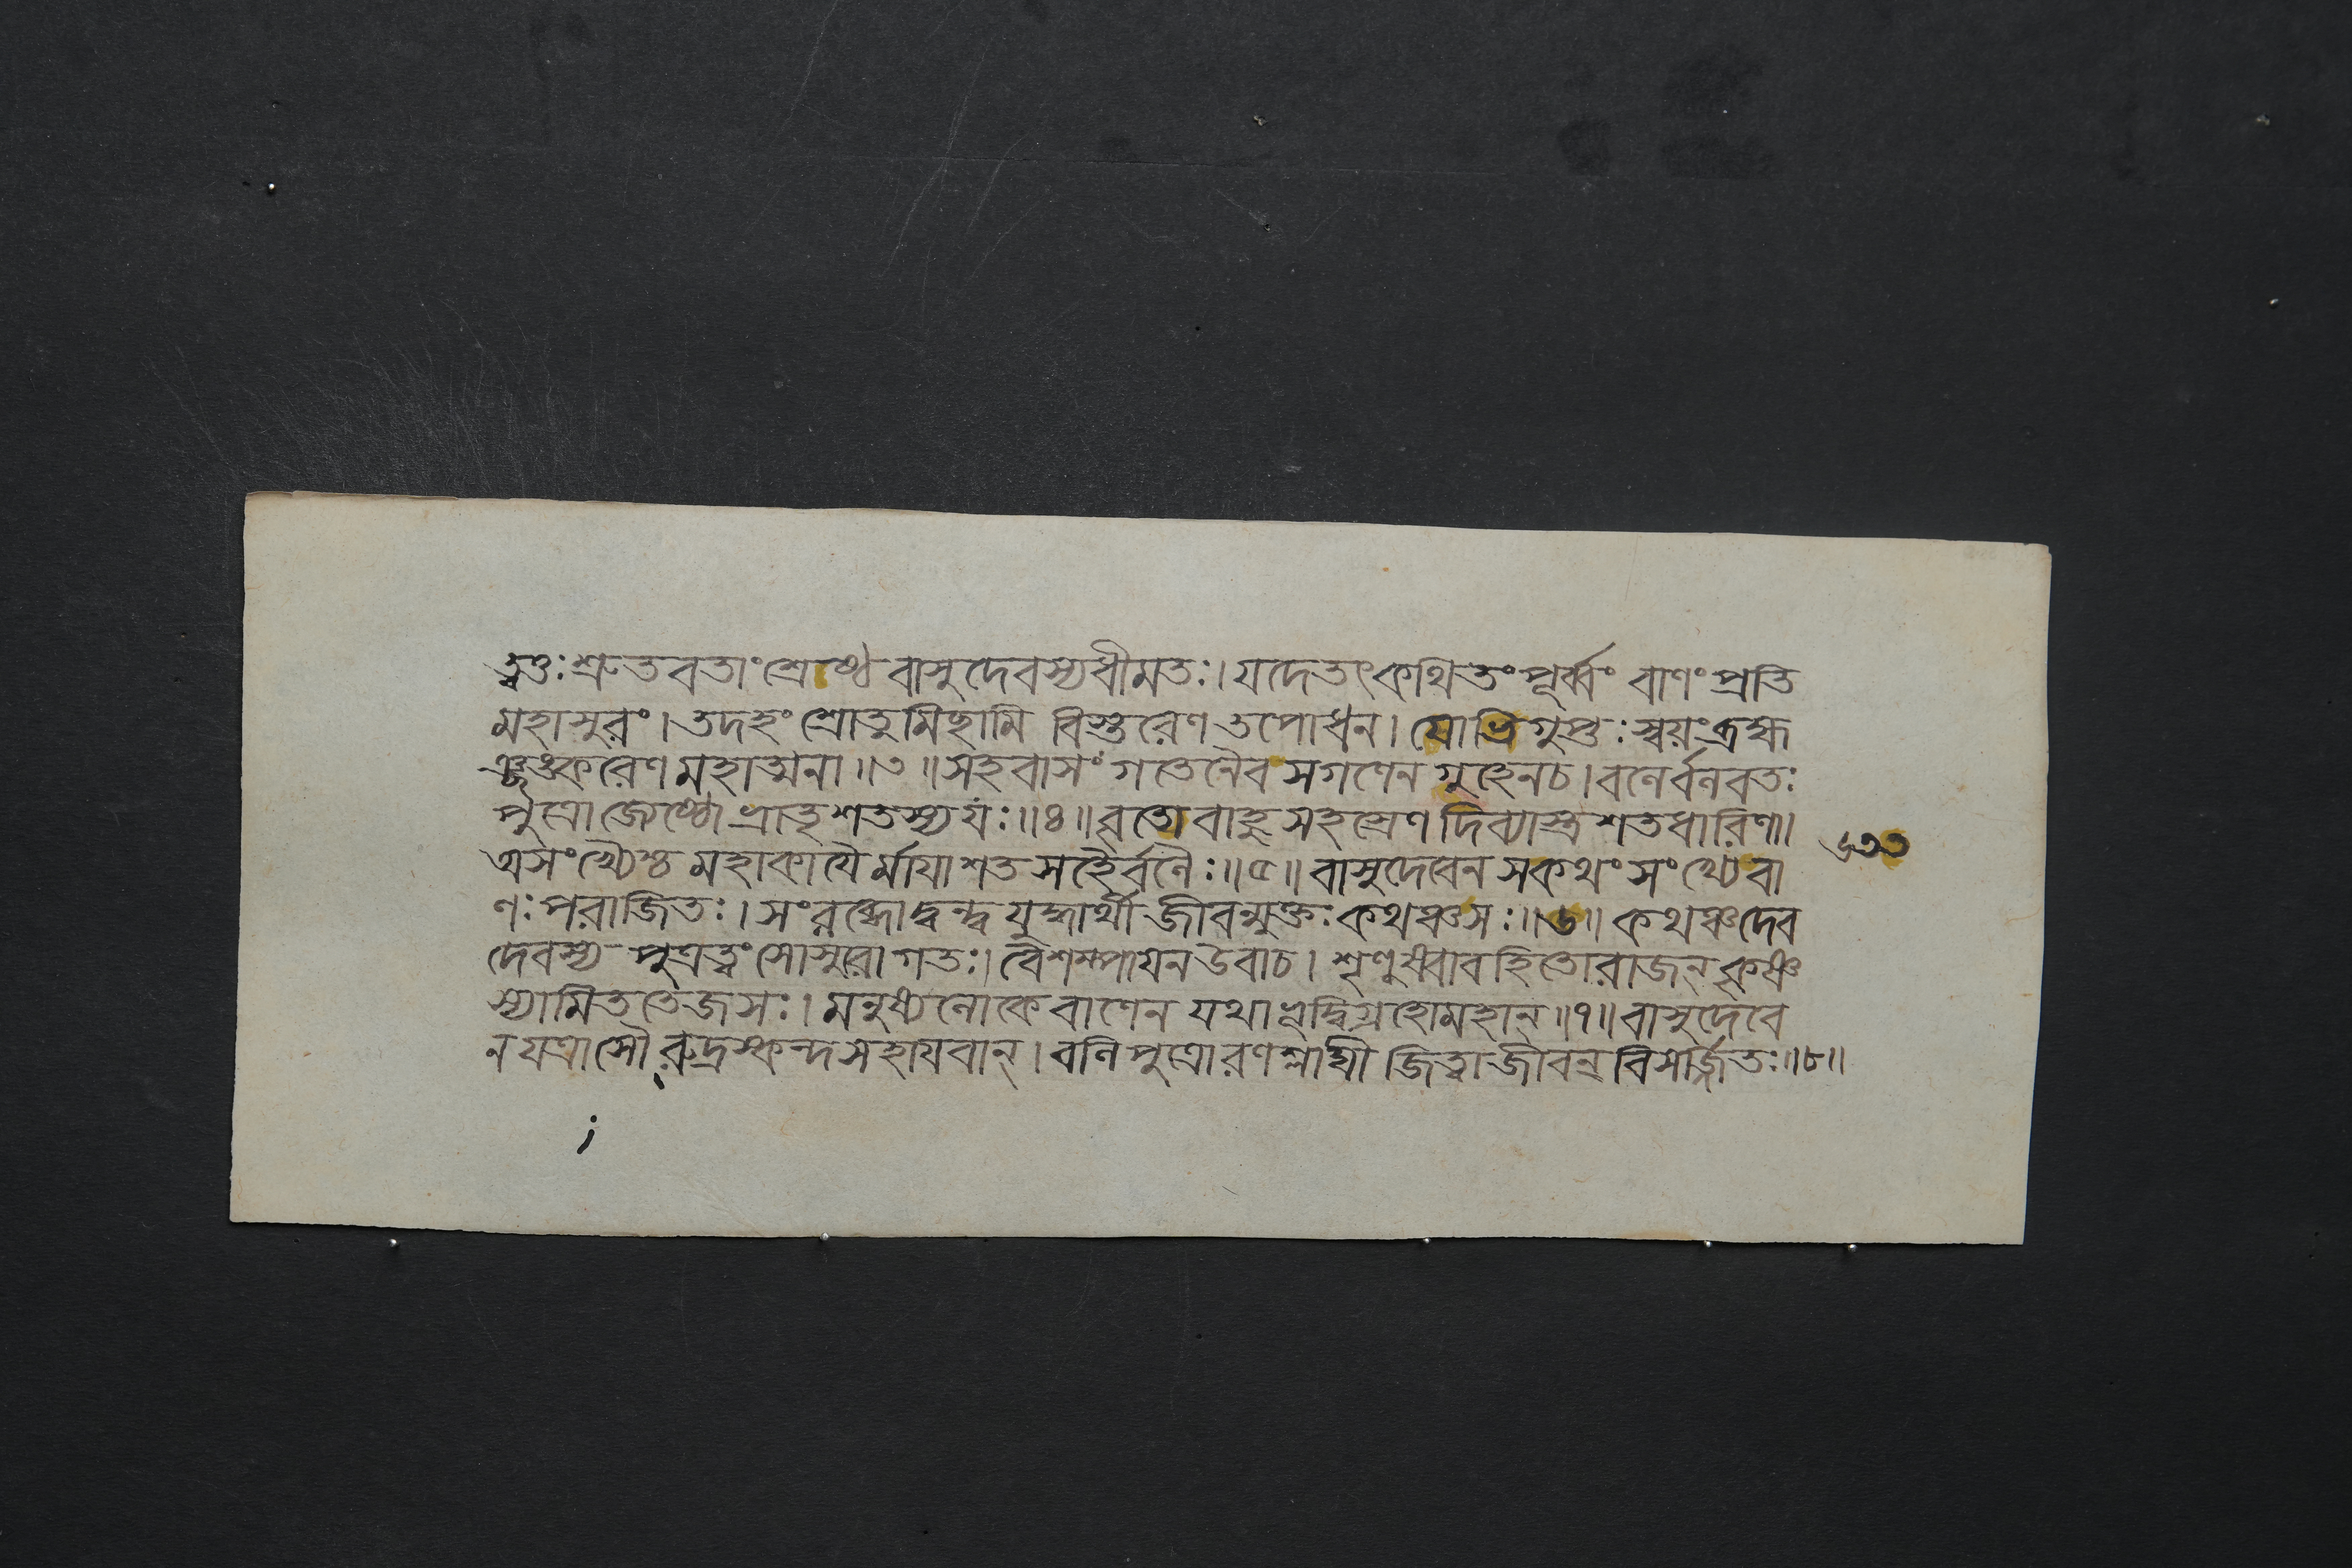 ত্বত্তঃ শ্রুতবতাং শ্রেষ্ঠো বাসুদেবস্য ধীমতঃ। যদেতৎ কথিতং পূর্ব্বং বাণং প্রতি
মহাসুরং। তদহং শ্রোতুমিছামি বিস্তরেণ তপোধন। যোভিগুপ্তঃ স্বয়ং ব্রহ্ম
শঙ্করেণ মহাত্মনা॥৩॥ সহবাসং গতেনৈব সগণেন গুহেন চ। বলের্বলবতঃ
পুত্রো জেষ্ঠো ভ্রাতৃশতস্য যঃ॥৪॥ বৃতো বাহুসহস্রেণ দিব্যাস্ত্রশতধারিণা।
অসংখ্যৈশ্চ মহাকাযৈর্মাযাশতসহৈর্বলৈঃ॥৫॥ বাসুদেবেন স কথং সংখ্যে বা
ণঃ পরাজিতঃ। সংরব্ধো দ্বন্দ্বযুদ্ধার্থী জীবন্মুক্তঃ কথঞ্চ সঃ॥৬॥ কথঞ্চ দেব
দেবস্য পুত্রত্বং সোসুরো গতঃ। বৈশম্পাযন উবাচ। শৃণুষ্বাবহিতো রাজন্ কৃষ্ণ
স্যামিততেজসঃ। মনুষ্যলোকে বাণেন যথাভূদ্বিগ্রহো মহান্॥৭॥ বাসুদেবে
ন যত্রাসৌ রুদ্রস্কন্দসহাযবান্। বলিপুত্রো রণশ্লাঘী জিত্বা জীবন্ বিসর্জ্জিতঃ॥৮॥
৬৩৩